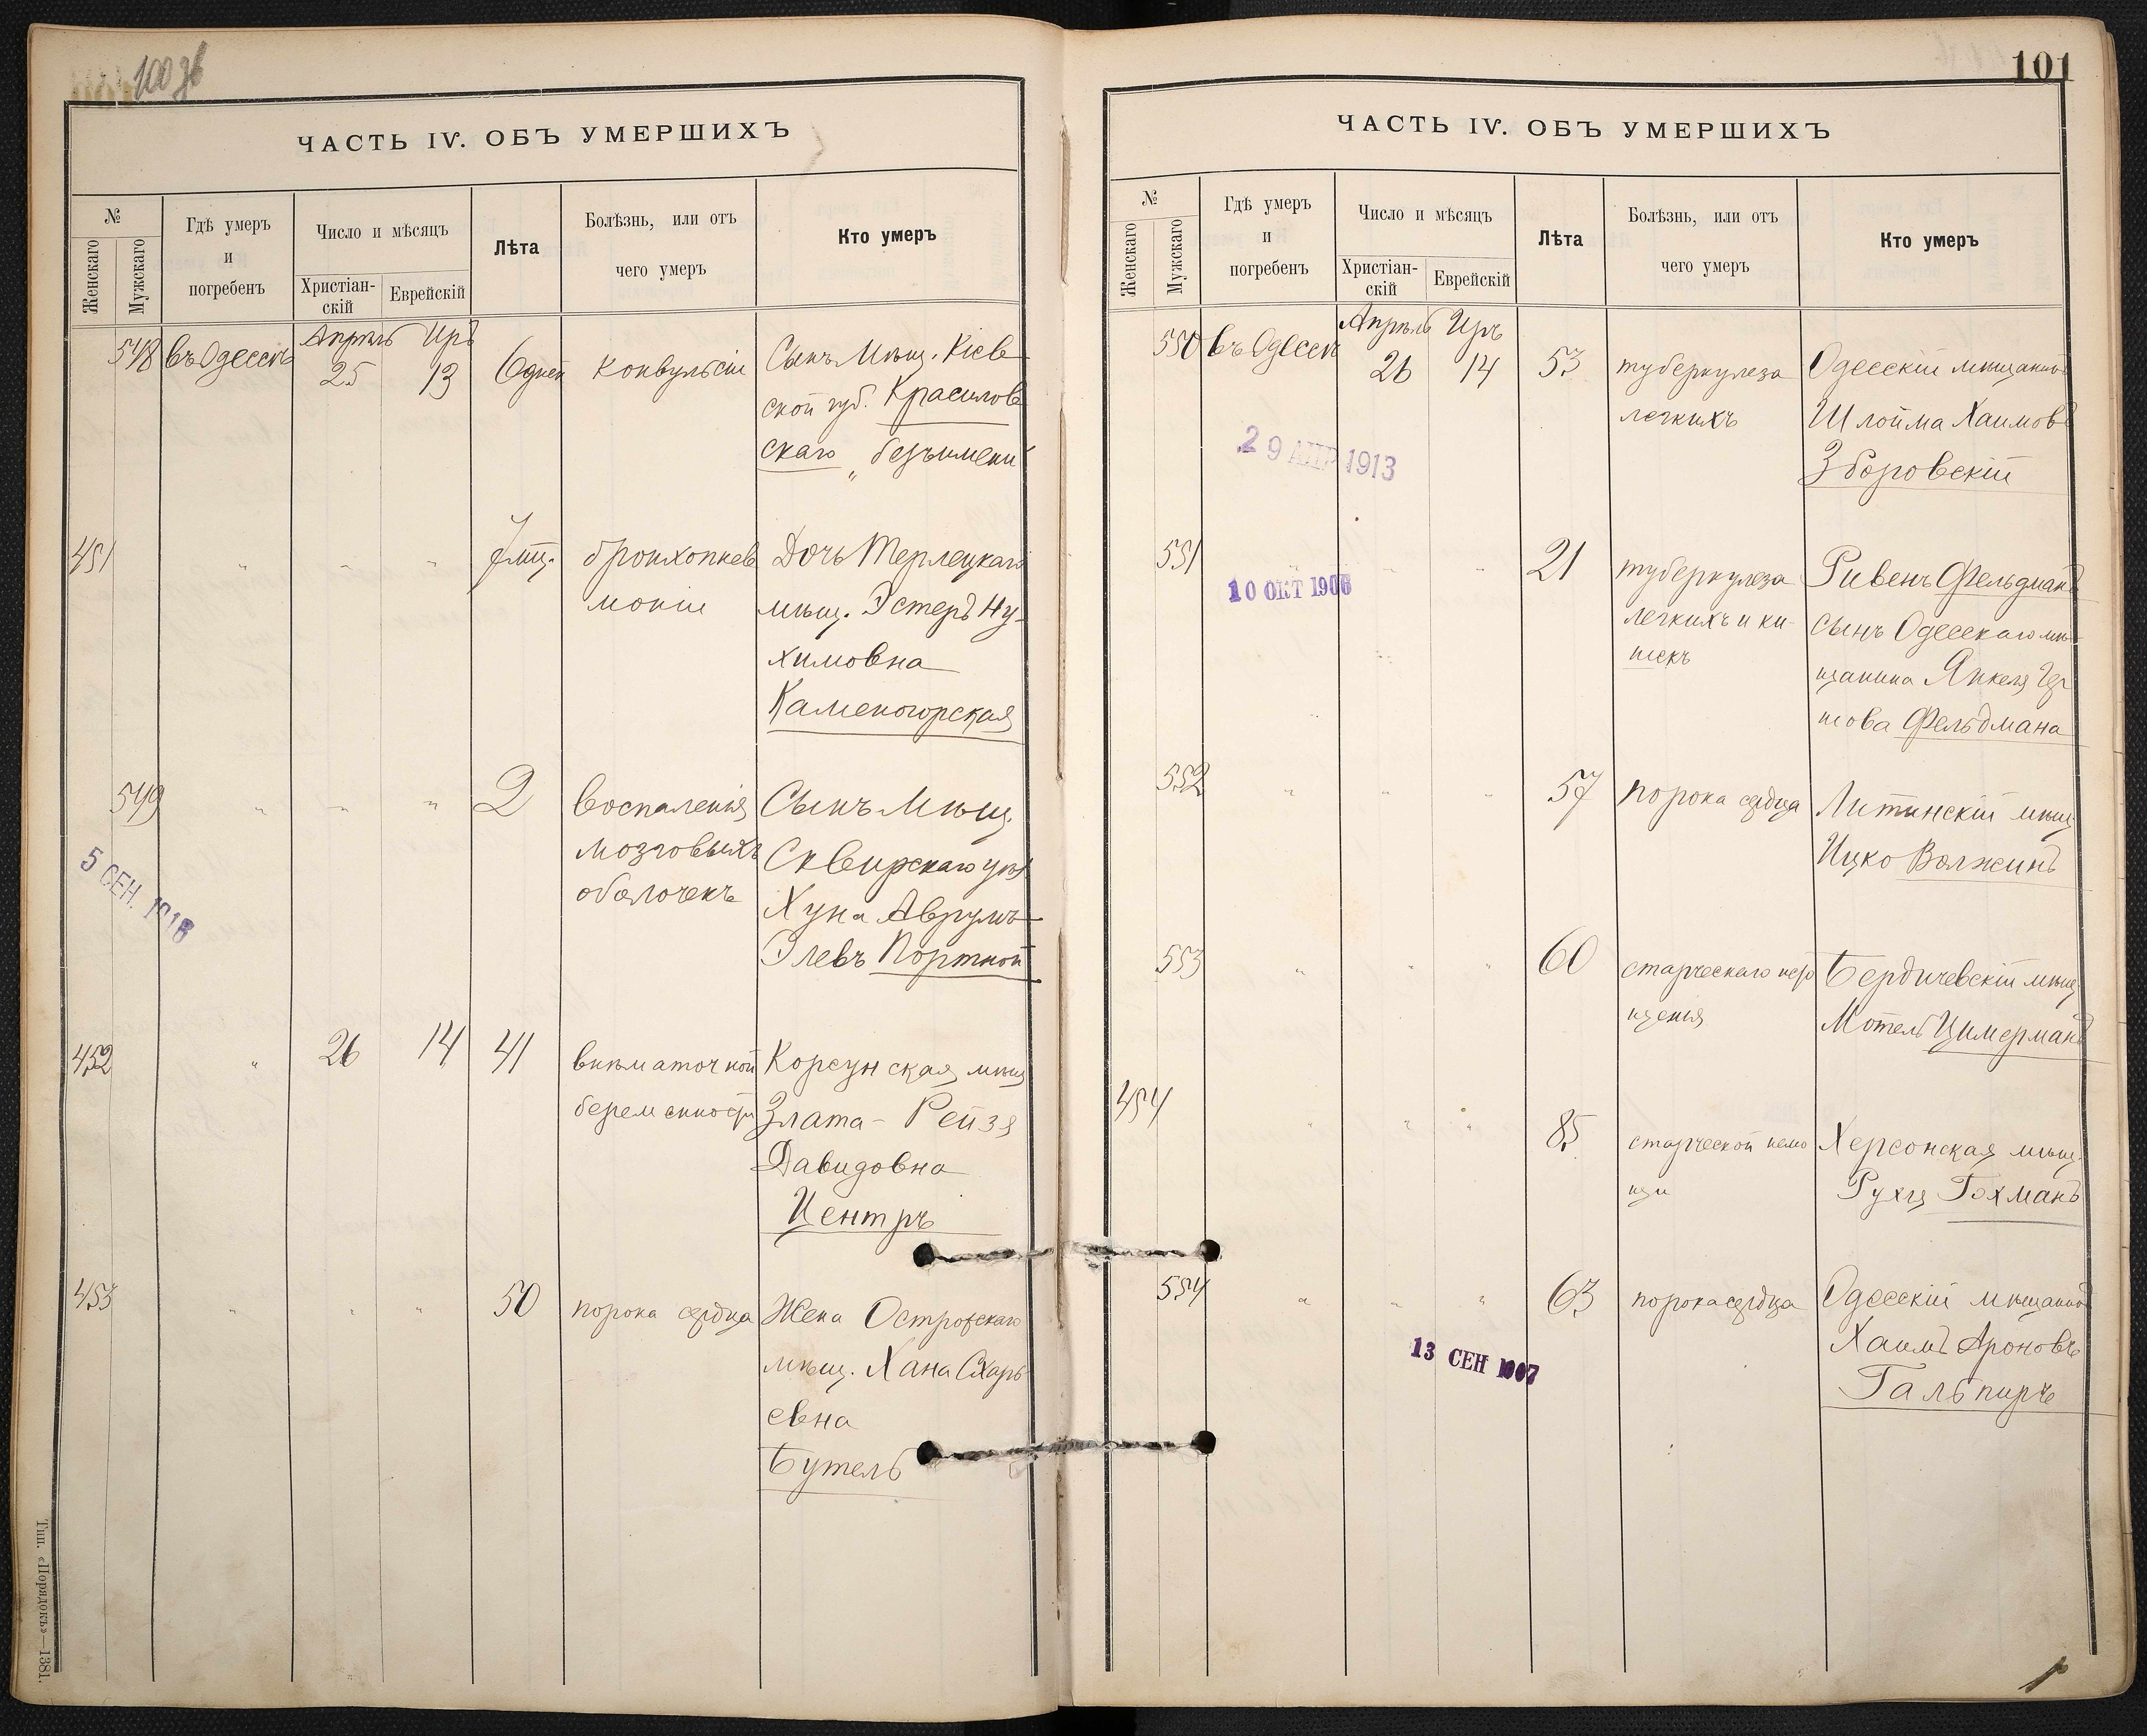 100 зв
ЧАСТЬ IV. ОБЪ УМЕРШИХЪ
№
Женскаго
Мужскаго
Гдѣ умеръ
и
погребенъ
Число и мѣсяцъ
Христіан-
скій
Еврейскій
Лѣта
Болѣзнь, или отъ
чего умеръ
Кто умеръ
548 въ Одессѣ Апрѣль 25 Иръ 13 6 дней конвульсіи Сынъ мѣщ. Кіев
ской губ. Красилов
скаго „безъимени"
451 " " " 7 мц. бронхопнев Дочь Терлецкаго
моніи мѣщ. Эстеръ Ну-
химовна
Каменогорская
549 " " " 2 воспаленія Сынъ мѣщ.
мозговыхъ Сквирскаго уѣз
оболочекъ Хуна Аврумъ-
Элевъ Портной
5 СЕН. 1916
452 " 26 14 41 внѣматочной Корсунская мѣщ
беременности Злата - Рейзя
Давидовна
Центръ
453 " " " 50 порока сердца Жена Острожскаго
мѣщ. Хана Схарь
евна
Бутель
Тип. «Порядокъ»—1381.
101
ЧАСТЬ IV. ОБЪ УМЕРШИХЪ
№
Женскаго
Мужскаго
Гдѣ умеръ
и
погребенъ
Число и мѣсяцъ
Христіан-
скій
Еврейскій
Лѣта
Болѣзнь, или отъ
чего умеръ
Кто умеръ
550 въ Одессѣ Апрѣль 26 Иръ 14 53 туберкулеза Одесскій мѣщанинъ
легкихъ Шлойма Хаимовъ
Зборовскій
29 АПР 1913
551 " " " 21 туберкулеза Рувенъ Фельдманъ
легкихъ и ки- сынъ Одесскаго мѣ-
шекъ щанина Янкеля Гер
шова Фельдмана
10 ОКТ 1906
552 " " " 57 порока сердца Литинскій мѣщ
Ицко Волжинъ
553 " " " 60 старческаго исто Бердичевскій мѣщ.
щенія Мотель Цимерманъ
454 " " " 85 старческой немо Херсонская мѣщ.
щи Рухля Гохманъ
554 " " " 63 порока сердца Одесскій мѣщанинъ
Хаимъ Ароновъ
Гальпиръ
13 СЕН 1907